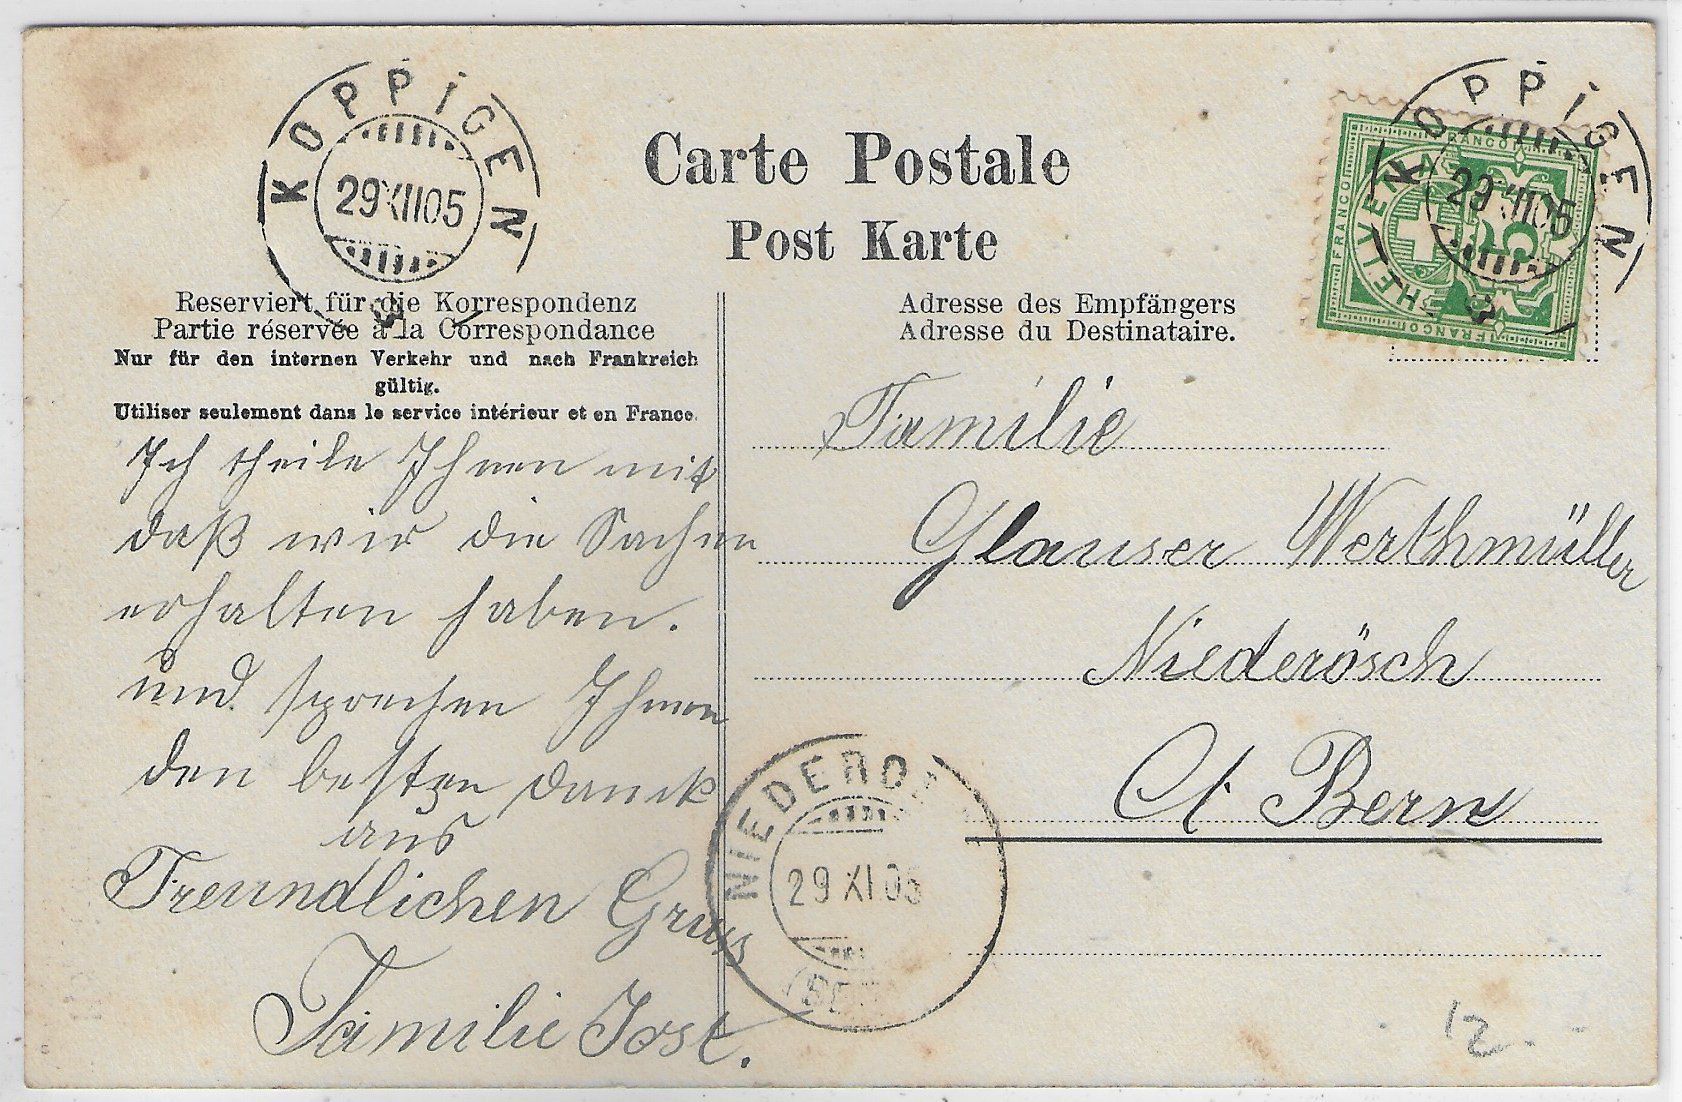 KOPPIGEN
29 XII 05
Carte Postale
Post Karte
KOPPIGEN
29 XII 05
FRANCO
HELVETIA
5
Reserviert für die Korrespondenz
Partie réservée à la Correspondance
Nur für den internen Verkehr und nach Frankreich
gültig.
Utiliser seulement dans le service intérieur et en France.
Adresse des Empfängers
Adresse du Destinataire.
Ich theile Ihnen mit
daß wir die Sachen
erhalten haben.
und sprechen Ihnen
den besten Danck
aus
Freundlichen Gruß
Familie Jost.
Familie
Glauser Werthmüller
Niederösch
Ct. Bern
29 XI 05
12.